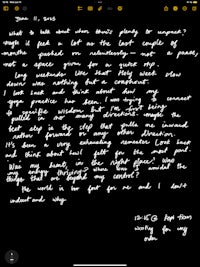 June 11, 2025
What to talk about when there's plenty to unpack?
Maybe it feels a lot as the last couple of
months pushed on relentlessly — not a pause,
not a space given for a quick step.
Long weekends like that Holy Week slow
down was nothing but a
I look back and think about how my
yoga practice has been. I was trying to connect
to specific wisdom but I'm just being
pulled in so many directions. Maybe the
best step is the step that pulls me inward
rather forward or any other direction.
It's been a very exhausting semester. Look back
and think about how I felt for the most part.
Was my heart in the right place? Was
my energy thriving? What was I amidst the
things that are beyond my control?
The world is so fast for me and I don't
understand why.
12:15 @
waiting for my
order